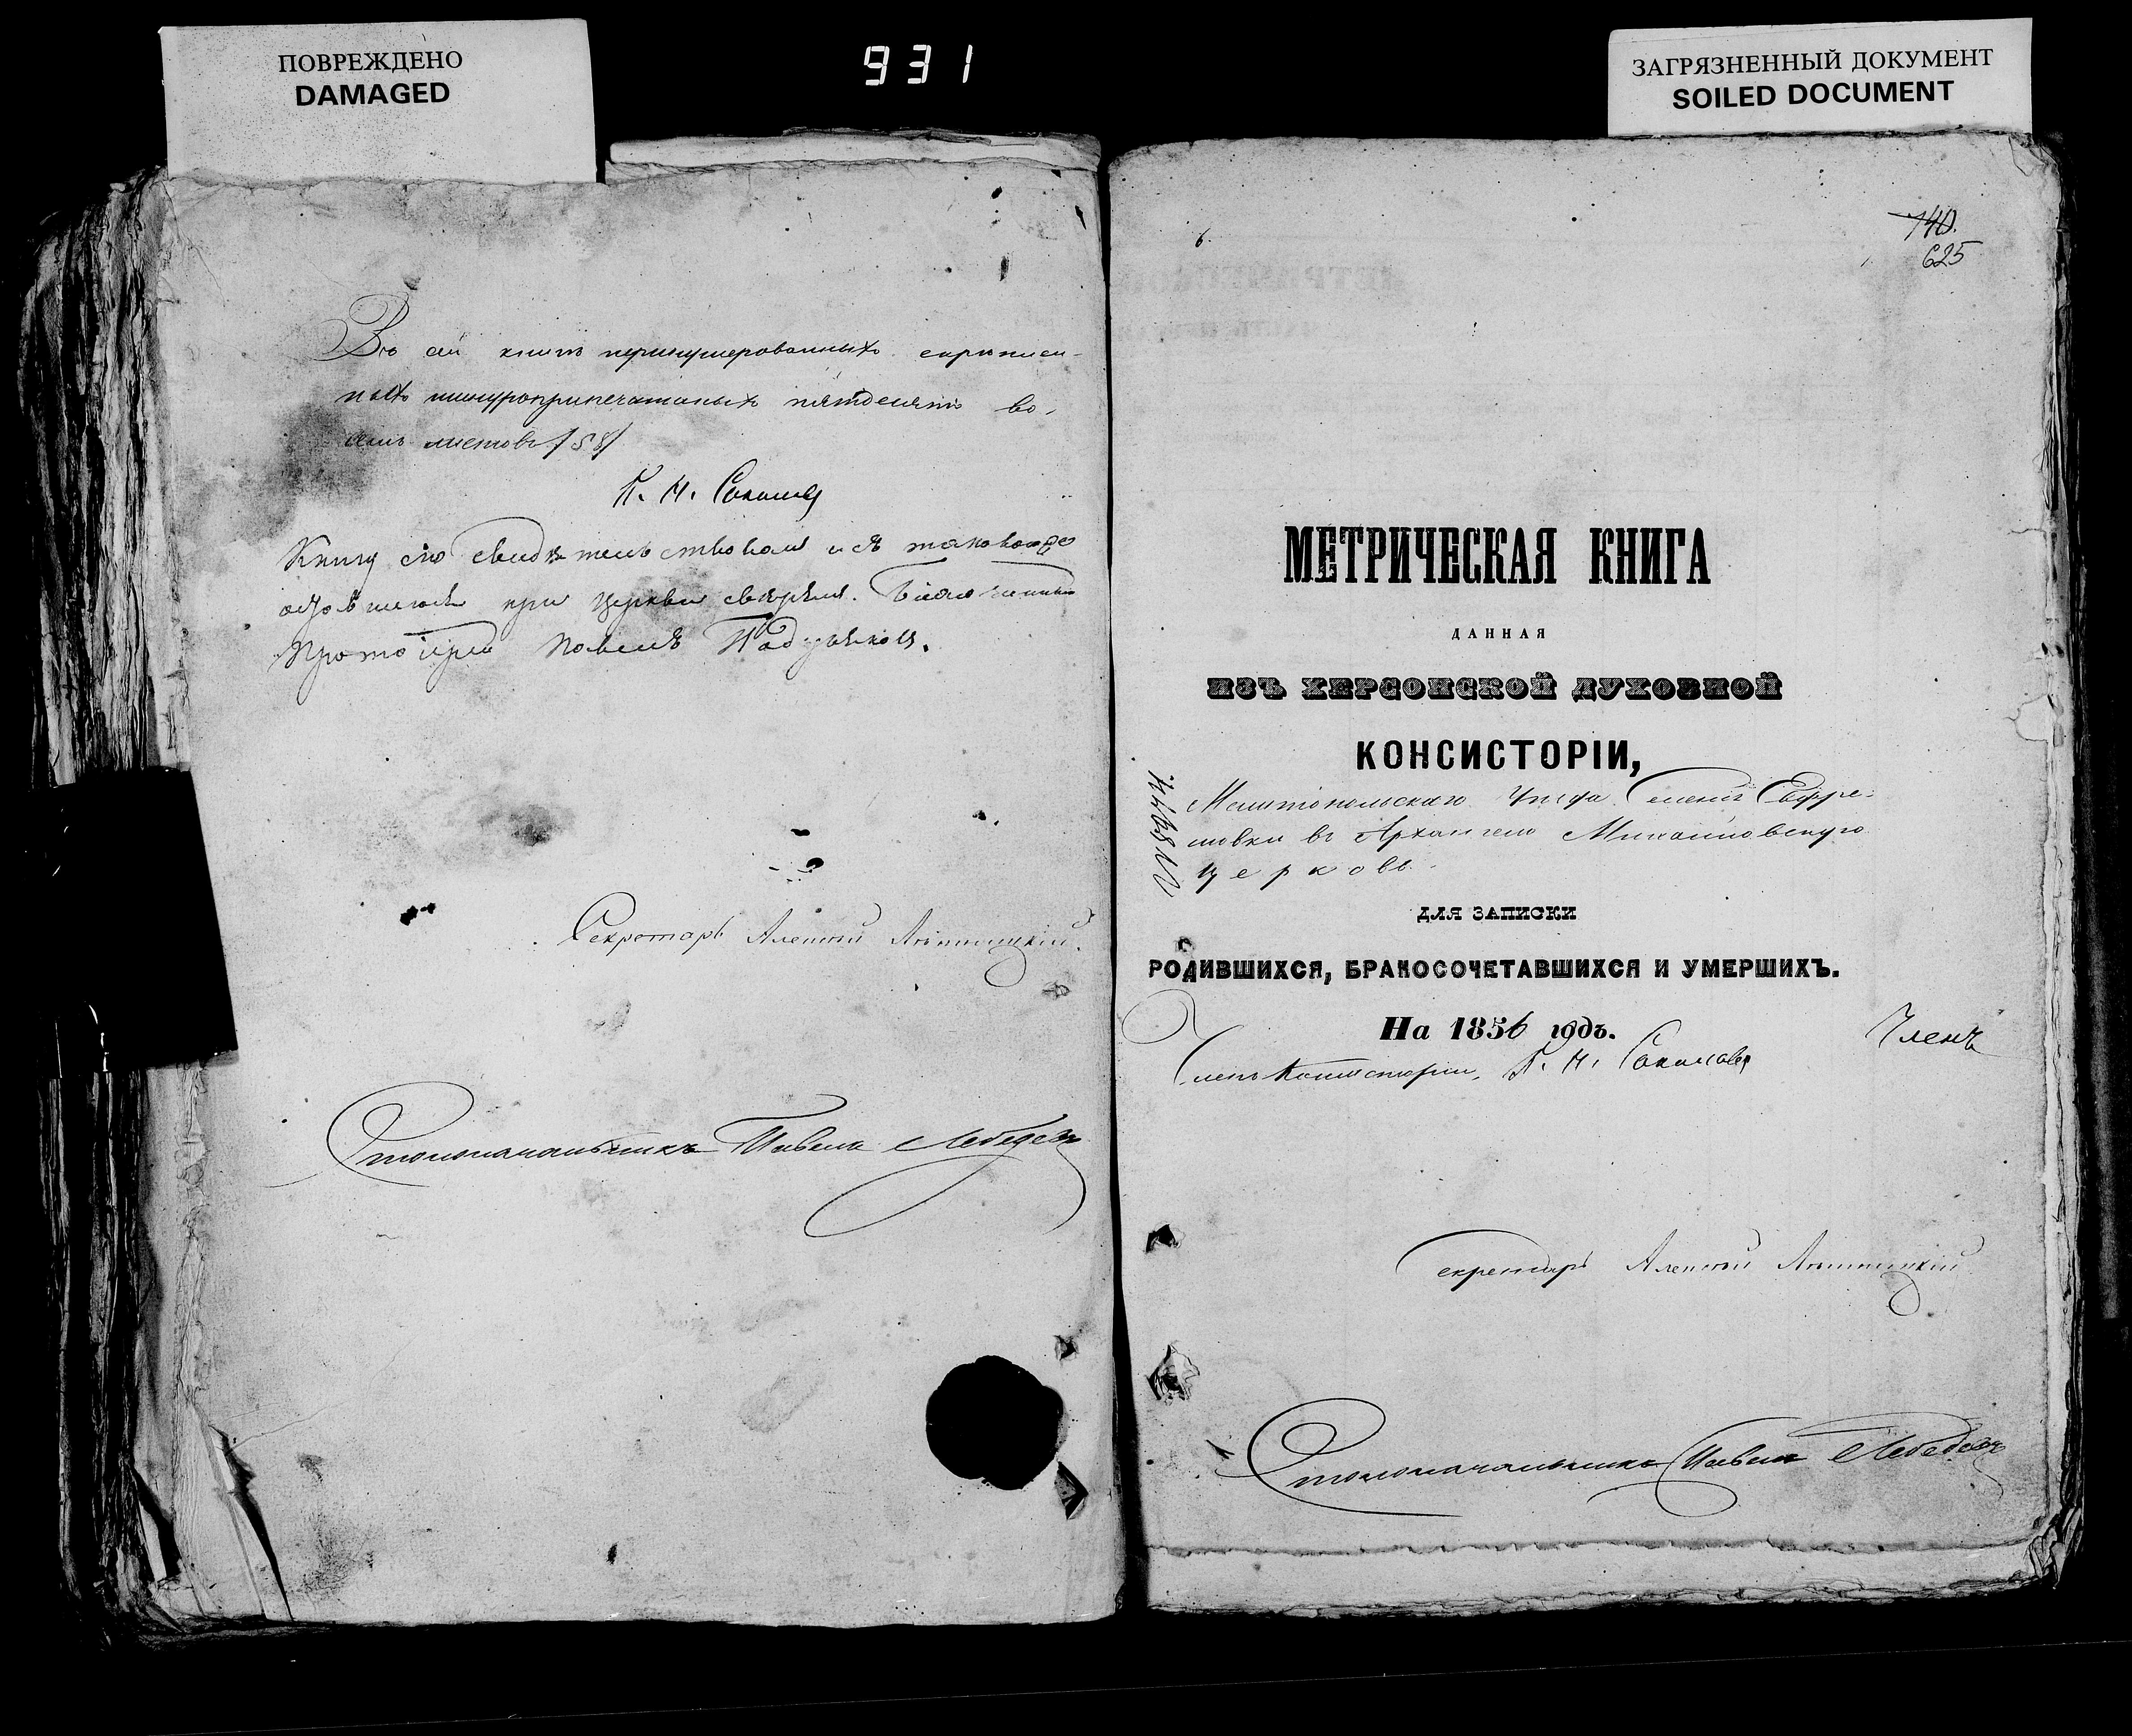 ПОВРЕЖДЕНО
DAMAGED
931
ЗАГРЯЗНЕННЫЙ ДОКУМЕНТ
SOILED DOCUMENT
Въ сей книгѣ пронумерованныхъ скрѣплен-
ныхъ шнуроприпечатаныхъ пятдесятъ во-
семь листовъ /58/
К. Н. Соколовъ
Книгу сію свидѣтельствовалъ и съ таковою же
оставшеюся при церкви свѣрялъ. Благочинный
Протоіерей Павелъ
Секретарь Алексѣй
Столоначальникъ Павелъ Лебедевъ
740.
625
МЕТРИЧЕСКАЯ КНИГА
ДАННАЯ
ИЗЪ ХЕРСОНСКОЙ ДУХОВНОЙ
КОНСИСТОРІИ,
Мелитопольскаго Уѣзда Селенія Ефре-
мовки въ Архангело Михайловскую
церковь.
ДЛЯ ЗАПИСКИ
РОДИВШИХСЯ, БРАКОСОЧЕТАВШИХСЯ И УМЕРШИХЪ.
На 1856 годъ.
Членъ
Членъ Консисторіи, К. Н. Соколовъ
Секретарь Алексѣй
Столоначальникъ Павелъ Лебедевъ